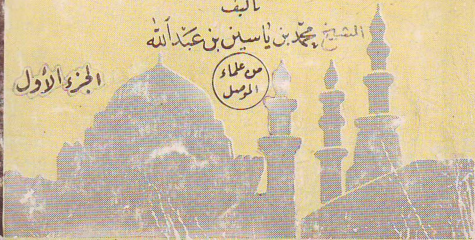 تأليف
الشيخ محمد بن ياسين بن عبد الله
من علماء
الموصل
الجزء الأول